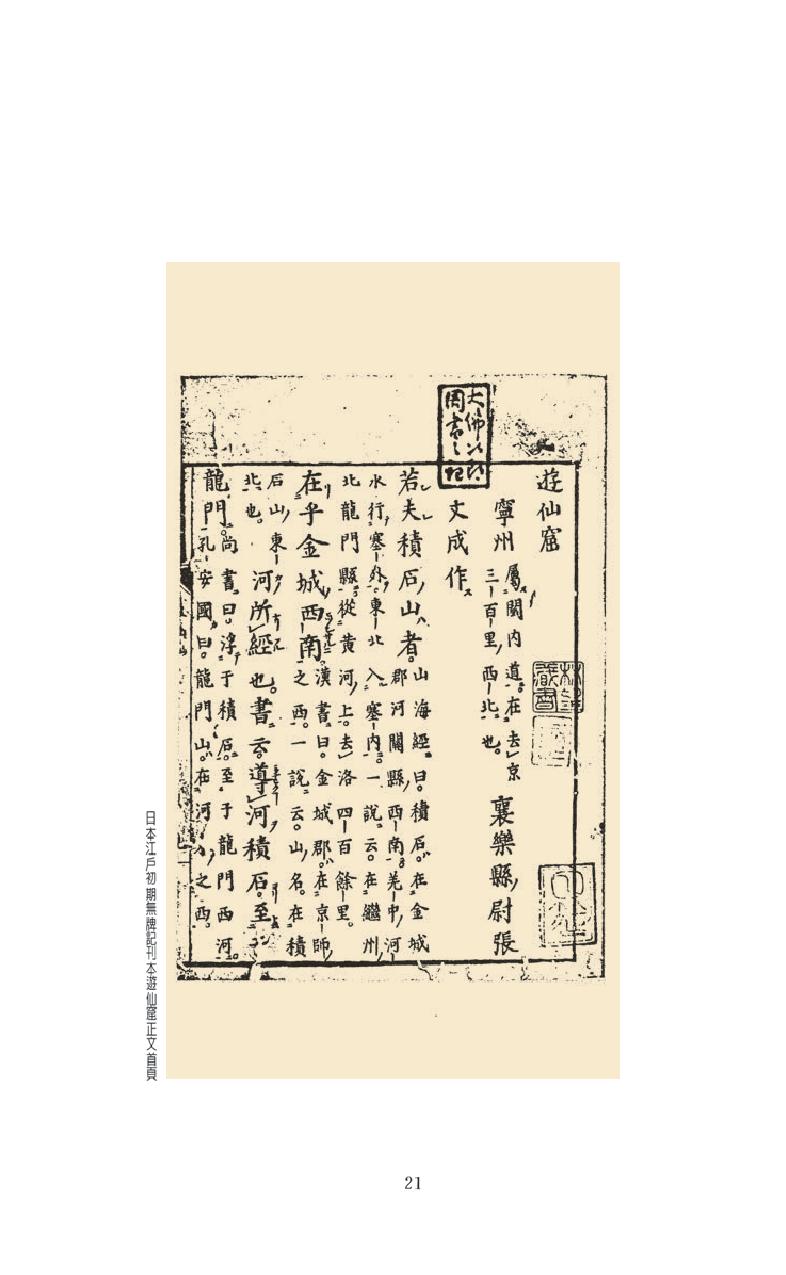 遊仙窟
寧州
屬関内道。在去京
三百里西北也。
襄樂縣尉張
文成作
若夫積石山者。
山海經曰。積石。在金城
郡河關縣西南羌中。河
水行塞外。東北入塞内。一說云。在繼州
北龍門縣。從黃河上。去洛四百餘里。
在乎金城西南
漢書曰。金城郡。在京師
之西。一說云。山名。在積
石山東
北也。
河所經也。書云。導河積石。至于
龍門。
尚書曰。浮于積石。至于龍門西河。
孔安國曰。龍門山。在河之西。
日本江戶初期無牌記刊本遊仙窟正文首頁
21